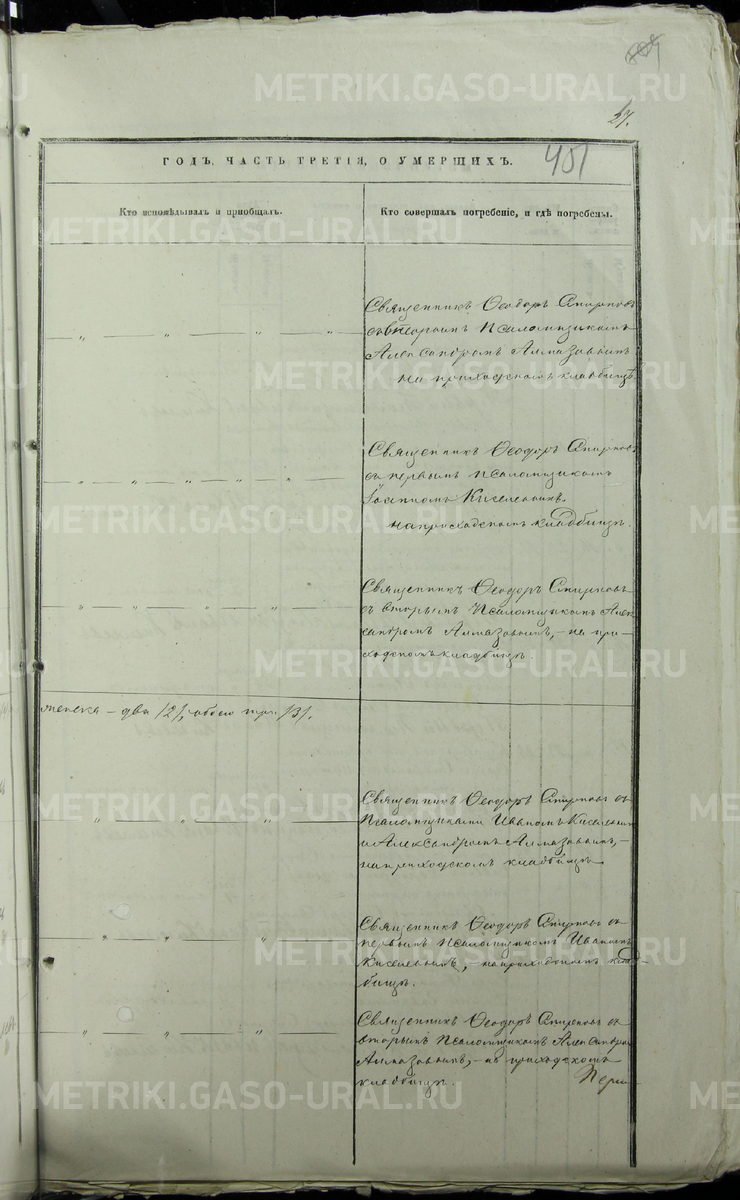 27.
401
ГОДЪ, ЧАСТЬ ТРЕТІЯ, О УМЕРШИХЪ.
Кто исповѣдывалъ и пріобщалъ.
Кто совершалъ погребеніе, и гдѣ погребены.
Священникъ Ѳеодоръ Смирновъ
съ вторымъ Псаломщикомъ
Александромъ Алмазовымъ
на приходскомъ кладбищѣ.
Священникъ Ѳеодоръ Смирновъ
съ первымъ Псаломщикомъ
Іоанномъ Киселевымъ.
на приходскомъ кладбищѣ.
Священникъ Ѳеодоръ Смирновъ
съ вторымъ Псаломщикомъ Алек
сандромъ Алмазовымъ, – на при–
ходскомъ кладбищѣ
женска – два /2/, обоего три /3/.
Священникъ Ѳеодоръ Смирновъ съ
Псаломщиками Иваномъ Киселевымъ
и Александромъ Алмазовымъ, –
на приходскомъ кладбищѣ
Священникъ Ѳеодоръ Смирновъ съ
первымъ Псаломщикомъ Иваномъ
Киселевымъ, на приходскомъ клад–
бищѣ.
Священникъ Ѳеодоръ Смирновъ съ
вторымъ Псаломщикомъ Александро
Алмазовымъ, – на приходскомъ
кладбищѣ.
METRIKI.GASO-URAL.RU